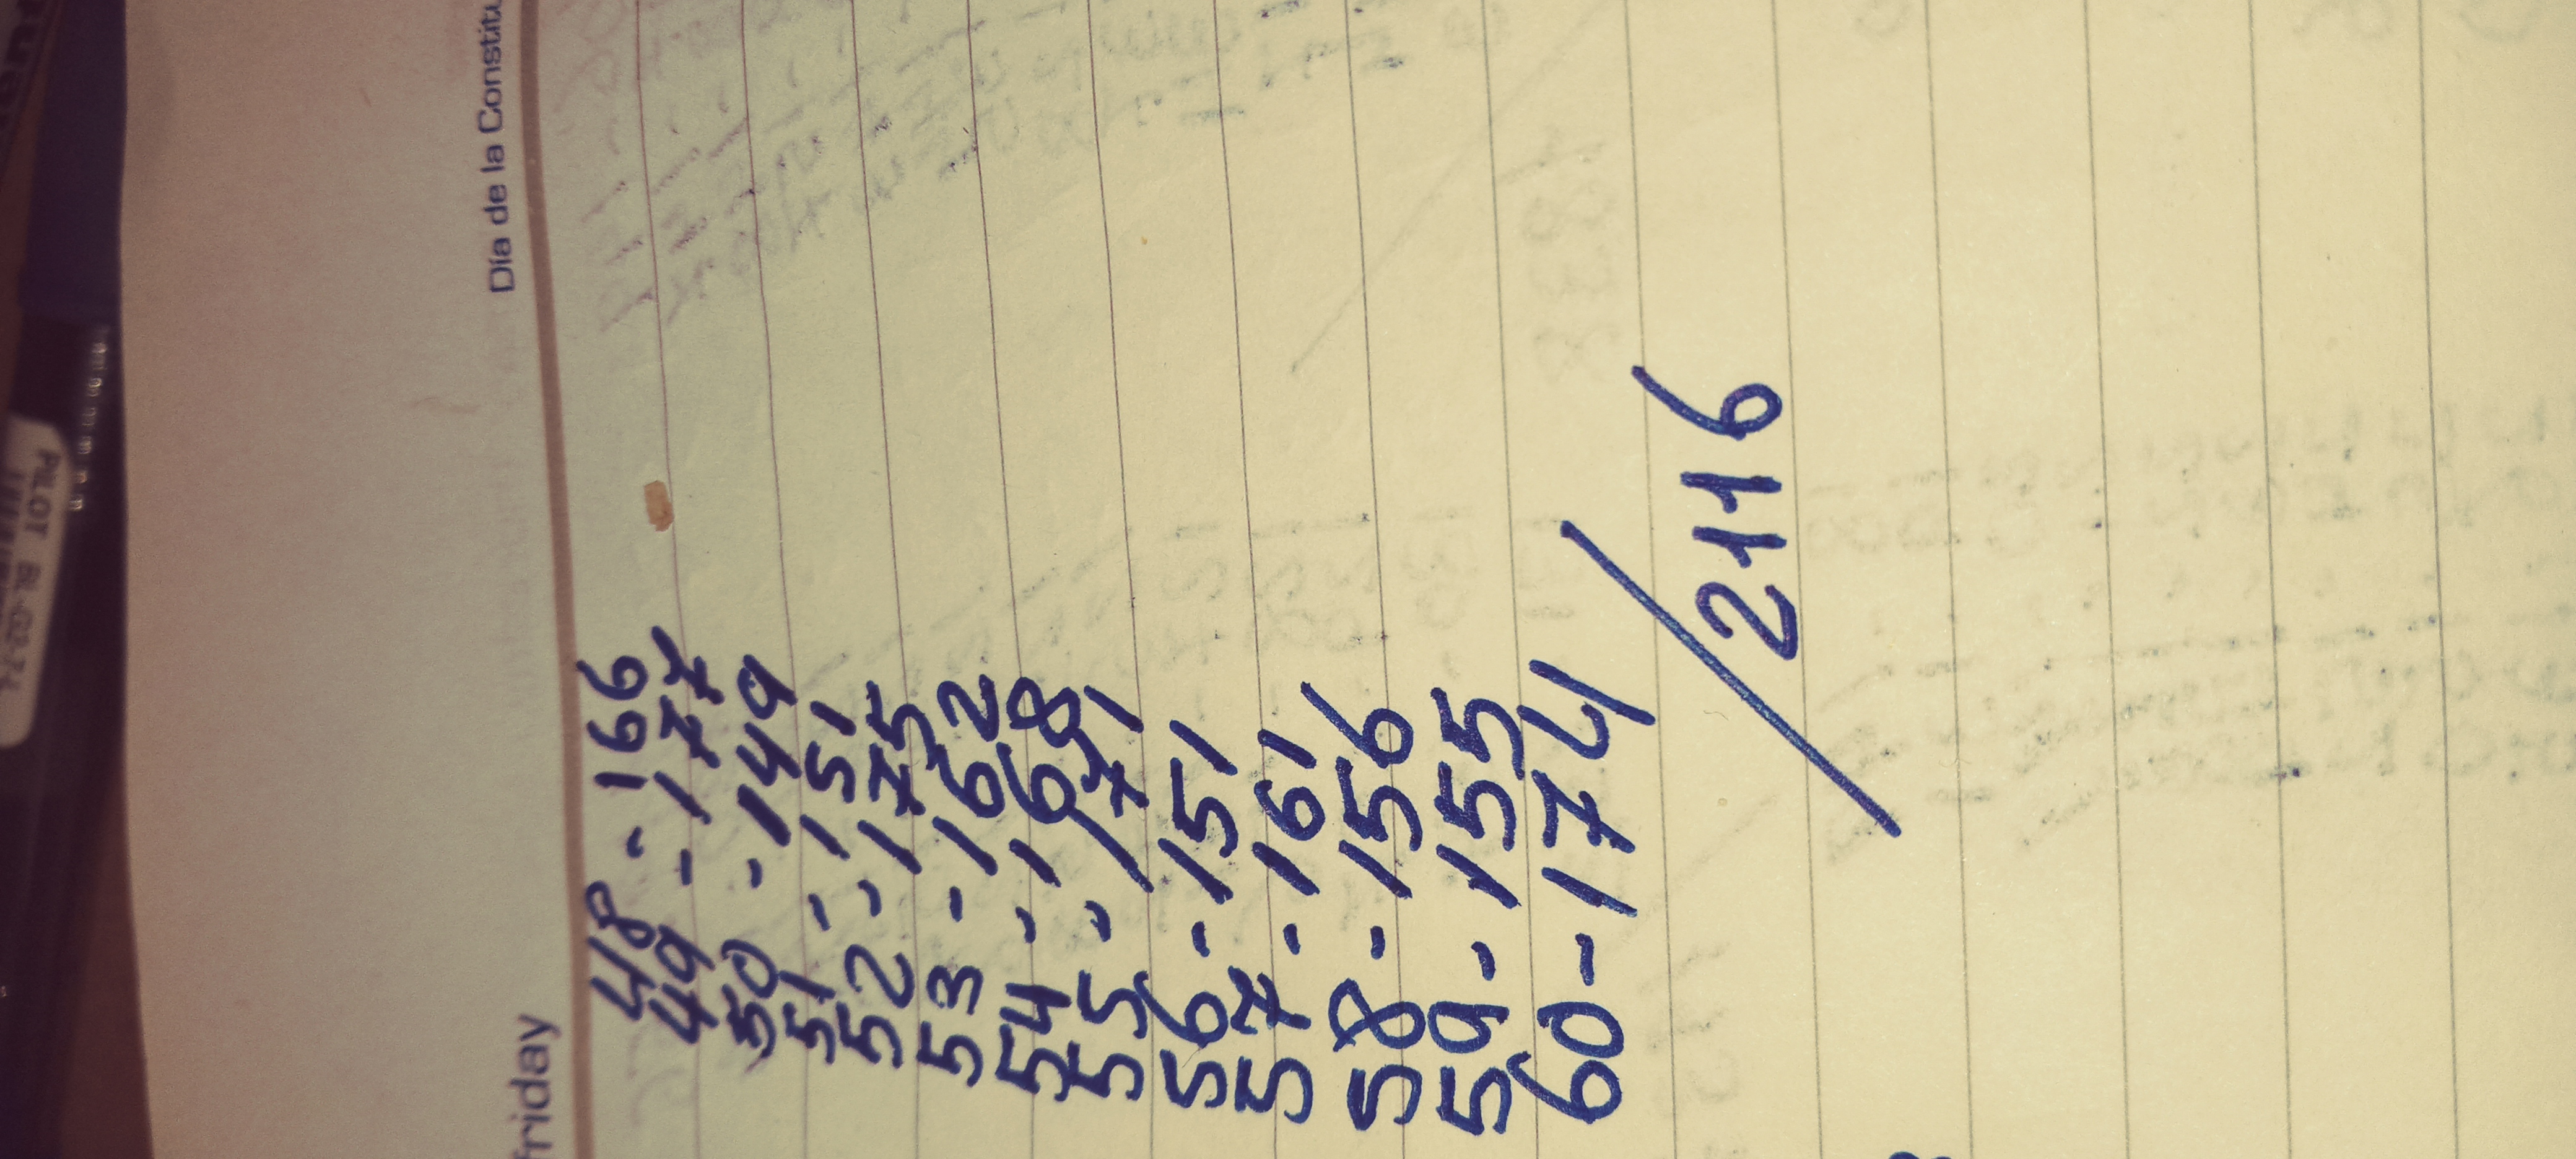 friday
Día de la Constitu
48 - 166
49 - 177
50 - 149
51 - 151
52 - 175
53 - 162
54 - 168
55 - 171
56 - 151
57 - 161
58 - 156
59 - 155
60 - 174
2116
PILOT BL-G2-7